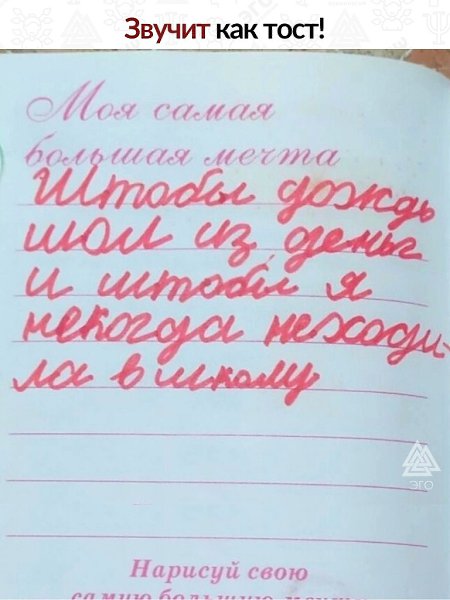 Звучит как тост!
Моя самая
большая мечта
Штобы дождь
шол из денг
и штобы я
некогда неходи-
ла в школу
ЭГО
Нарисуй свою
самую большую мечту